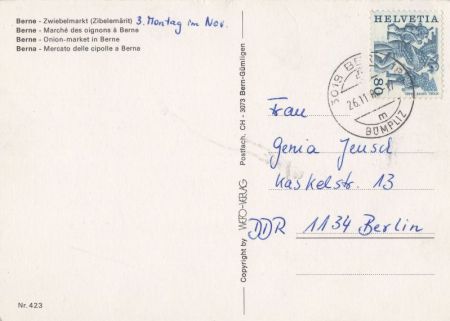 Berne - Zwiebelmarkt (Zibelemärit) 3. Montag im Nov.
Berne - Marché des oignons à Berne
Berne - Onion-market in Berne
Berna - Mercato delle cipolle a Berna
Nr. 423
Copyright by WERO-VERLAG Postfach, CH - 3073 Bern-Gümligen
HELVETIA
80
3018 BERN
26.11
m
BÜMPLIZ
Frau
Genia Jeusch
Kaskelstr. 13
DDR 1134 Berlin